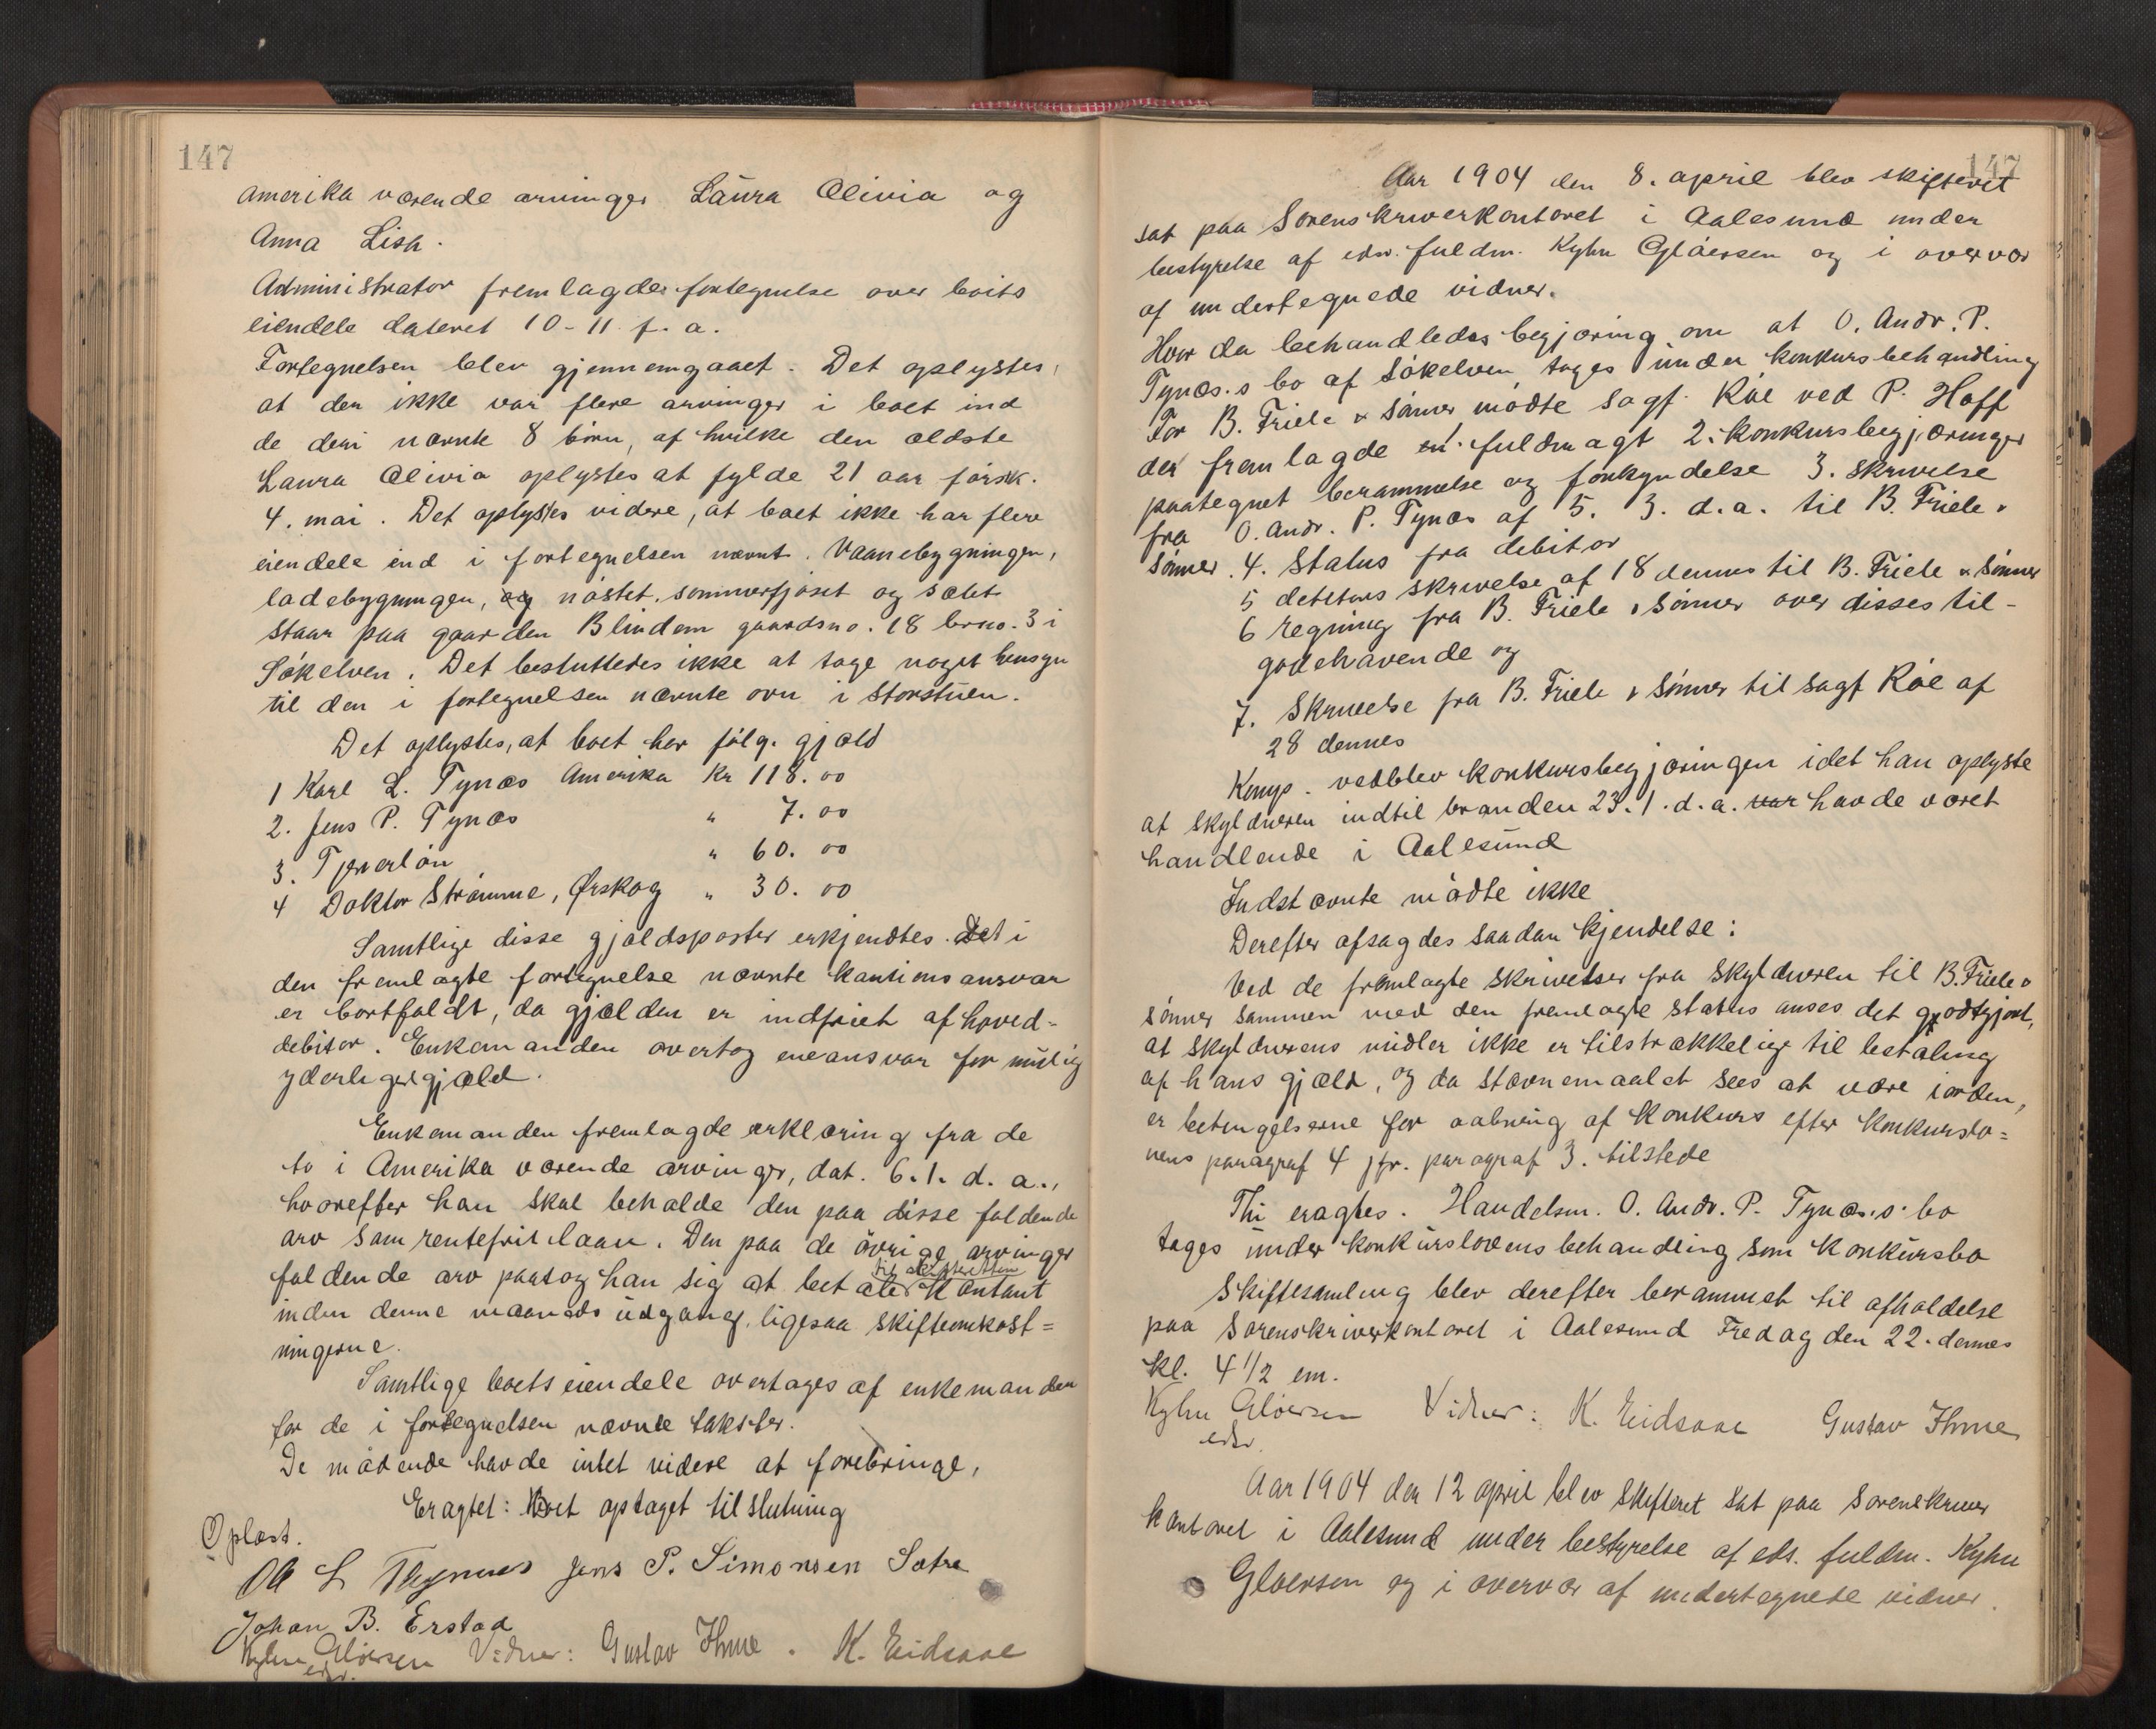 147
Amerika værende arvinger Laura Olivia og
Anna Lish.
Administrator fremlagde fortegnelse over boits
eiendele dateret 10-11 f. a.
Fortegnelsen blev gjennemgaaet. Det oplystes,
at der ikke var flere arvinger i boet ind
de deri nævnte 8 børn, af hvilke den ældste
Laura Olivia oplystes at fylde 21 aar førstk.
4. mai. Det oplystes videre, at boet ikke har flere
eiendele end i fortegnelsen nævnt. Vaanebygningen,
ladebygningen, og nøstet, sommerfjøset og sælet
staar paa gaarden Blindem gaardsno. 18 brno. 3 i
Søkelven. Det besluttedes ikke at tage noget hensyn
til den i fortegnelsen nævnte ovn i storstuen.
Det oplystes, at boet har følg. gjæld
1 Karl L. Tynæs Amerika Kr 118.00
2. Jens P. Tynæs " 7.00
3. Tjenerløn " 60.00
4 Doktor Strømme, Ørskog " 30.00
Samtlige disse gjældsposter erkjendtes. Det i
den fremlagte fortegnelse nævnte kautionsansvar
er bortfaldt, da gjælden er indfriet af hoved-
debitor. Enkemanden overtog eneansvar for mulig
yderligere gjæld.
Enkemanden fremlagde erklæring fra de
to i Amerika værende arvinger, dat. 6.1. d. a.,
hvorefter han skal beholde den paa disse faldende
arv som rentefrit laan. Den paa de øvrige arvinger
til skifteretten
faldende arv paatog han sig at betale kontant
inden denne maaneds udgang, ligesaa skifteomkost-
ningerne.
Samtlige boets eiendele overtages af enkemanden
for de i fortegnelsen nævnte takster.
De mødende havde intet videre at forebringe,
Eragtet: Boet optaget til slutning
Oplæst.
Ole L Thynæs Jens P. Simonsen Sætre
Johan B. Erstad
Kyhn Gløersen Vidner: Gustav Ihme. K. Eidsaae
edsv.
147
Aar 1904 den 8. april blev skifteret
sat paa Sorenskriverkontoret i Aalesund under
bestyrelse af edsv. fuldm. Kyhn Gløersen og i overvær
af undertegnede vidner.
Hvor da behandledes begjæring om at O. Andr. P.
Tynæs.s bo af Søkelven, tages under konkursbehandling
For B. Friele & sønner mødte sagf. Røe ved P. Hoff
der fremlagde en fuldmagt 2. konkursbegjæringer
paategnet berammelse og forkyndelse 3. skrivelse
fra O. Andr. P. Tynæs af 5. 3. d. a. til B. Friele &
sønner. 4. Status fra debitor
5 debitors skrivelse af 18 dennes til B. Friele & sønner
6 regning fra B. Friele & sønner over disses til-
godehavende og
7. Skrivelse fra B. Friele & sønner til sagf Røe af
28 dennes
Komp. vedblev konkursbegjæringen idet han oplyste
at skyldneren indtil branden 23.1. d. a. var havde været
handlende i Aalesund
Indstævnte mødte ikke
Derefter afsagdes saadan kjendelse:
Ved de fremlagte skrivelser fra skyldneren til B. Friele &
sønner sammen med den fremlagte status anses det godtgjort,
at skyldnerens midler ikke er tilstrækkelige til betaling
af hans gjæld, og da stævnemaalet sees at være iorden,
er betingelserne for aabning af konkurs efter konkurslo-
vens paragraf 4 jfr. paragraf 3. tilstede
Thi eragtes. Handelsm. O. Andr. P. Tynæs.s. bo
tages under konkurslovens behandling som konkursbo
Skiftesamling blev derefter berammet til afholdelse
paa Sorenskriverkontoret i Aalesund Fredag den 22. dennes
kl. 4 1/2 em.
Kyhn Gløersen Vidner: K. Eidsaae Gustav Ihme
edsv.
Aar 1904 den 12 april blev skifteret sat paa sorenskriver
kontoret i Aalesund under bestyrelse af eds. fuldm. Kyhn
Gløersen og i overvær af undertegnede vidner.